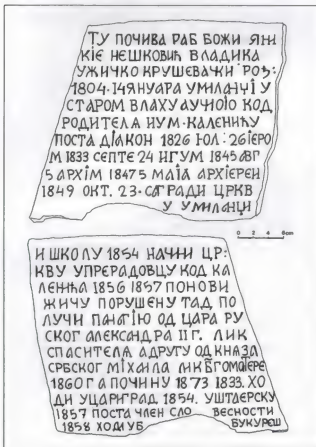 ТУ ПОЧИВА РАБ БОЖИ ЯНИ
КІЄ НЕШКОВИЋ ВЛАДИКА
УЖИЧКО КРУШЕВАЧКИ РОЂ:
1804·14ЯНУАРА УМИЛАНЧІ У
СТАРОМ ВЛАХУ АУЧІОЈУ КОД
РОДИТЕЛѦ ИУМ·КАЛЕНИЋУ
ПОСТА ДІѦКОН 1826 ЮЛ:26ІЄРО
М 1833 СЕПТЕ 24 ИГУМ 1845 АВГ
5 АРХІМ 18475 МАІѦ АРХІЄРЕИ
1849 ОКТ. 23·САГРАДИ ЦРКВ
У УМИЛАНЦИ
0 2 4 6cm
И ШКОЛУ 1854 НАЧИИ ЦР:
КВУ УПРЕРАДОВЦУ КОД КА
ЛЕНИЋА 1856 1857 ПОНОВИ
ЖИЧУ ПОРУШЕНУ ТАД ПО
ЛУЧИ ПАНАГІЮ ОД ЦАРА РУ
СКОГ АЛЕКСАНДРА II Г. ЛИК
СПАСИТЕЛѦ АДРУГУ ОД КНѦЗА
СРБСКОГ МІХАИЛА ЛИК БГОМАТЕРЕ
1860 Г А ПОЧИНУ 1873 1833. ХО
ДИ УЦАРИГРАД 1854. УШТАЕРСКУ
1857 ПОСТА ЧЛЕН СЛО ВЕСНОСТИ
1858 ХОДИ УБ БУКУРЕШ